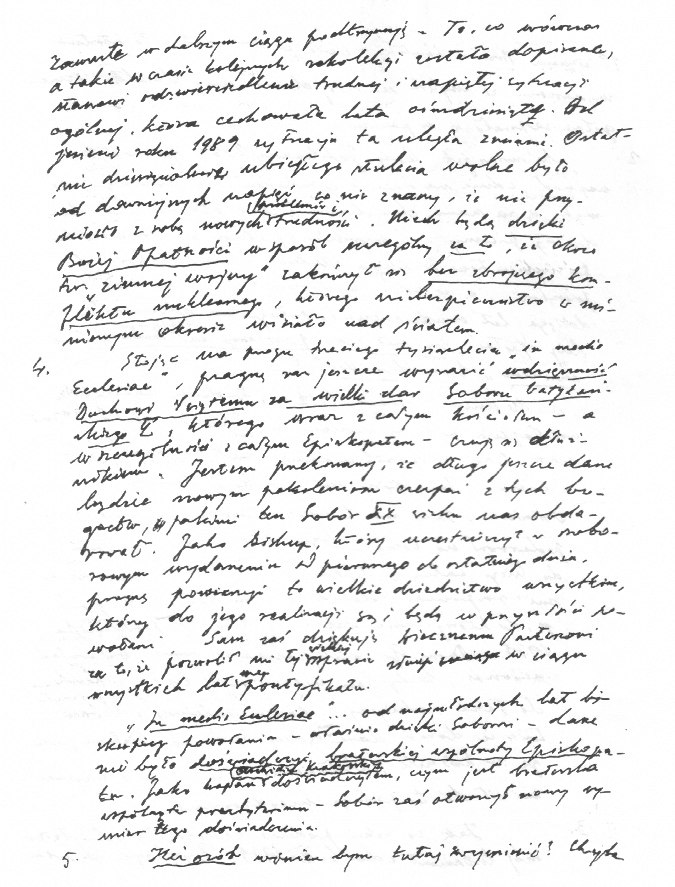 zawarte w dalszym ciągu podtrzymuję – To, co wówczas
a także w czasie kolejnych rekolekcji zostało dopisane,
stanowi odzwierciedlenie trudnej i napiętej sytuacji
ogólnej, która cechowała lata osiemdziesiąte. Od
jesieni roku 1989 sytuacja ta uległa zmianie. Ostat-
nie dziesięciolecie ubiegłego stulecia wolne było
od dawniejszych napięć, co nie znaczy, że nie przy-
niosło z sobą nowych problemów i trudności. Niech będą dzięki
Bożej Opatrzności w sposób szczególny za to, że okres
tzw. „zimnej wojny" zakończył się bez zbrojnego kon-
fliktu nuklearnego, którego niebezpieczeństwo w mi-
nionym okresie wisiało nad światem.
4. Stojąc na progu trzeciego tysiąclecia „in medio
Ecclesiae", pragnę raz jeszcze wyrazić wdzięczność
Duchowi Świętemu za wielki dar Soboru Watykań-
skiego II, którego wraz z całym Kościołem – a
w szczególności z całym Episkopatem – czuję się dłuż-
nikiem. Jestem przekonany, że długo jeszcze dane
będzie nowym pokoleniom czerpać z tych bo-
gactw, jakimi ten Sobór XX wieku nas obda-
rował. Jako Biskup, który uczestniczył w soboro-
rowym wydarzeniu od pierwszego do ostatniego dnia,
pragnę powierzyć to wielkie dziedzictwo wszystkim,
którzy do jego realizacji są i będą w przyszłości po-
wołani. Sam zaś dziękuję Wiecznemu Pasterzowi
za to, że pozwolił mi tej wielkiej sprawie służyć w ciągu
wszystkich lat mego pontyfikatu.
„In medio Ecclesiae"... od najmłodszych lat bi-
skupiego powołania – właśnie dzięki Soborowi – dane
mi było doświadczyć braterskiej wspólnoty Episkopa-
tu. Jako kapłan Archidiecezji Krakowskiej doświadczyłem, czym jest braterska
wspólnota prezbyterium – Sobór zaś otworzył nowy wy-
miar tego doświadczenia.
5. Ileż osób winien bym tutaj wymienić! Chyba